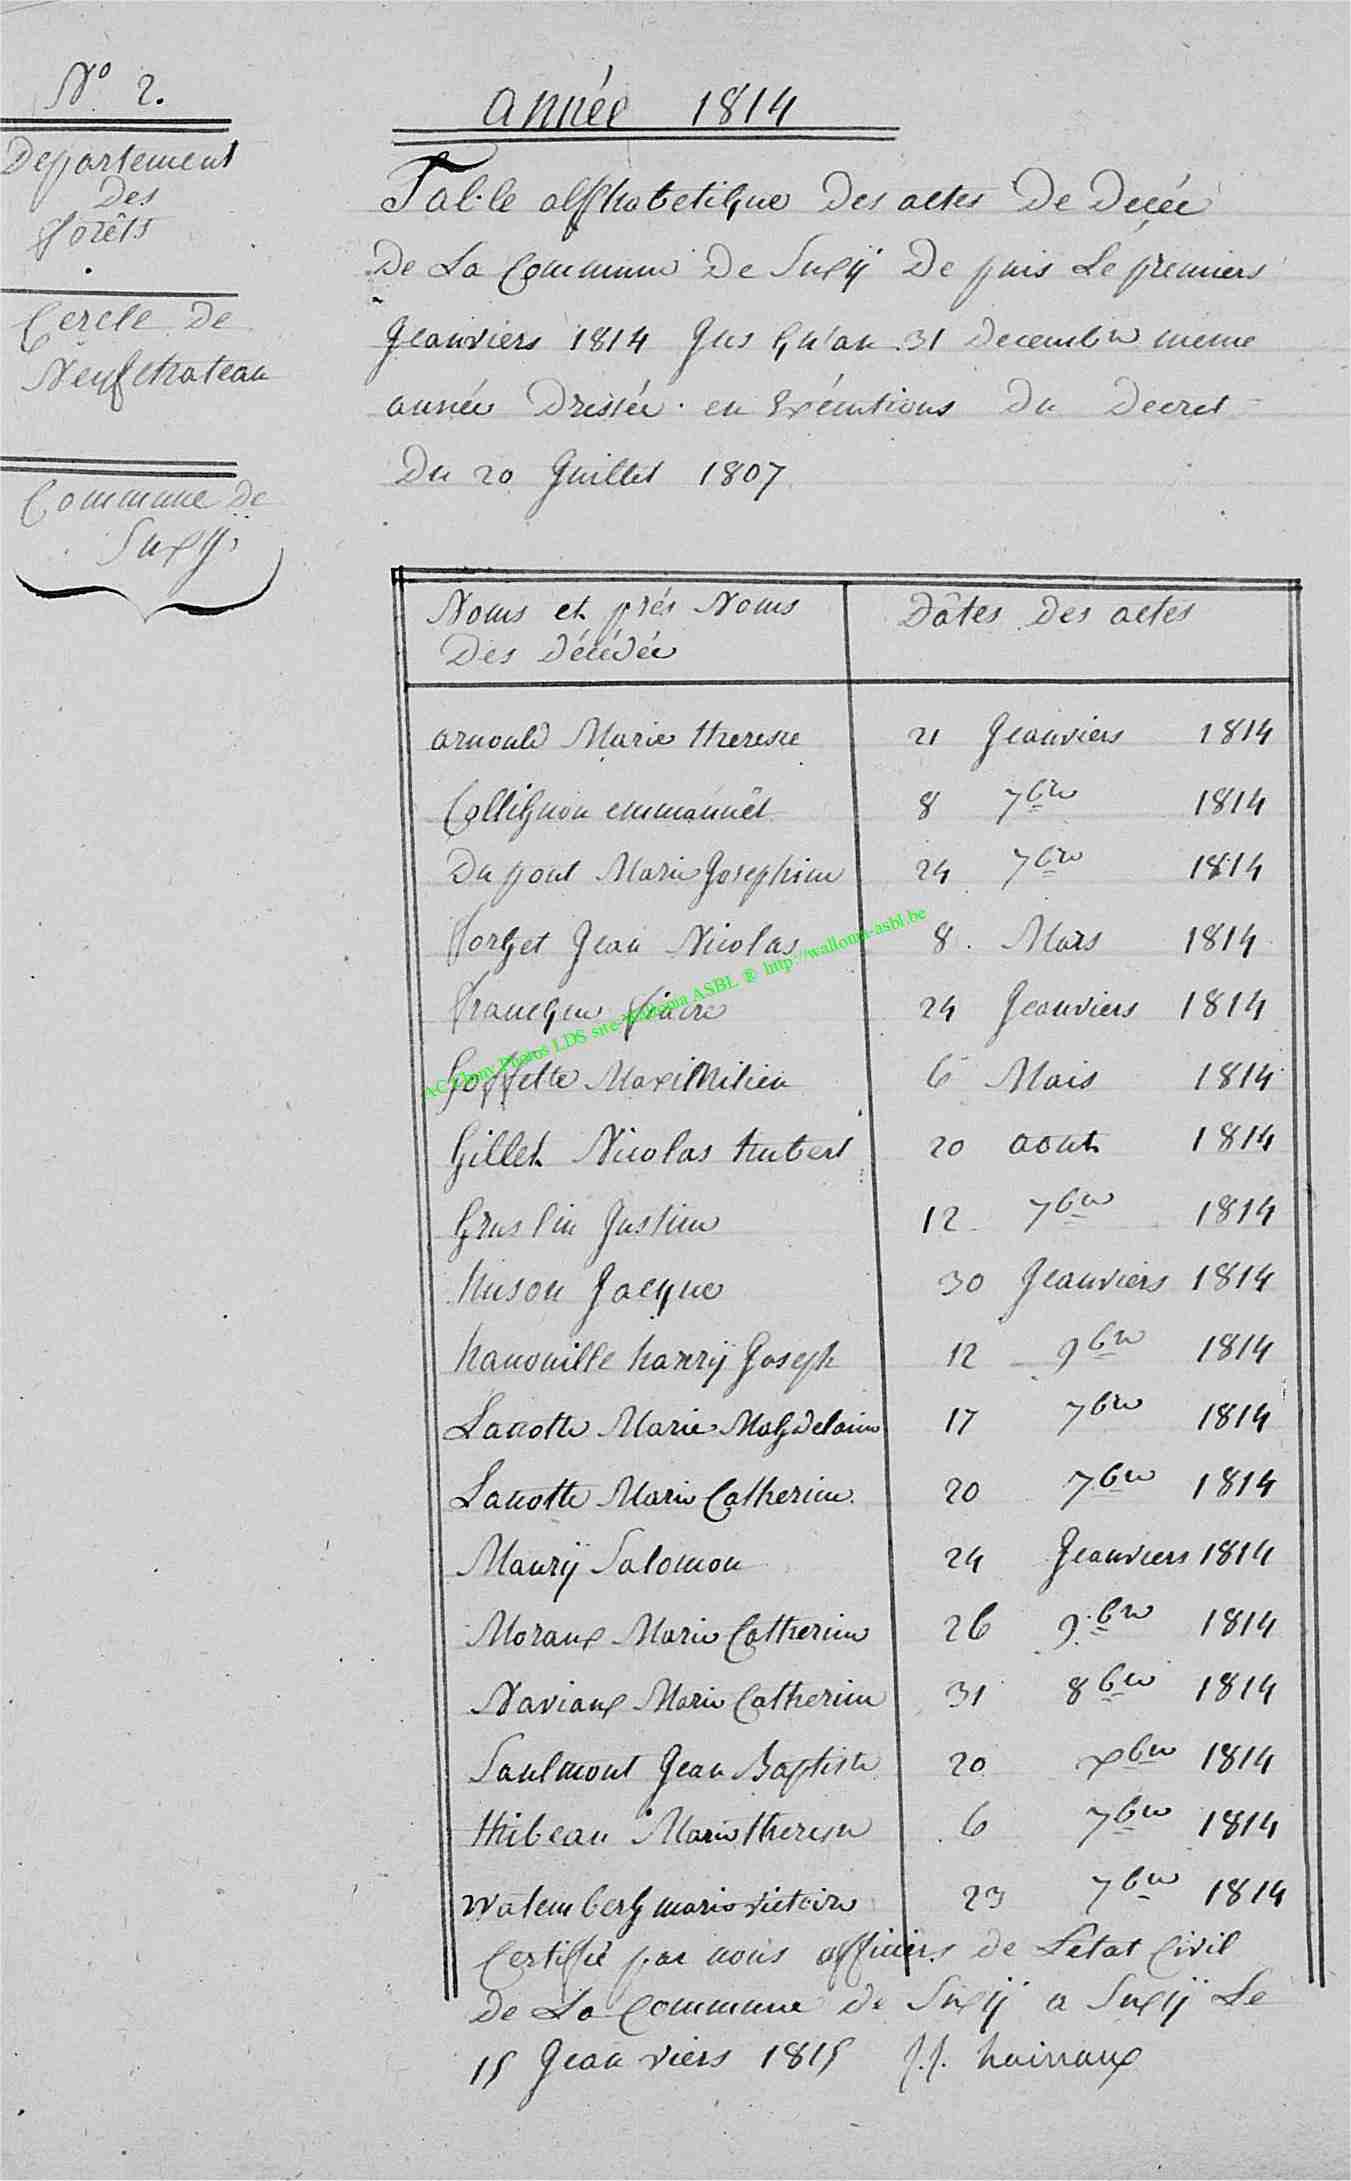 No 2.
Departement
Des
forêts
Cercle De
Neufchateau
Commune de
Suxÿ
année 1814
Table alphabetique Des actes De Decée
De La Commune De Suxÿ De puis Le premiers
Jeanviers 1814 Jus qu'au 31 Decembre meme
année Dressée en Exécutions Du Decret
Du 20 Juillet 1807
Noms et prés Noms
Des Décédée
Dâtes Des actes
arnould Marie therese 21 Jeanviers 1814
Collignon emmanuël 8 7bre 1814
Du pont Marie Josephine 24 7bre 1814
forget Jean Nicolas 8 Mars 1814
francque fiacre 24 Jeanviers 1814
AC Chiny Photos LDS site Wallonia ASBL ® http://wallonia-asbl.be
Goffette Maximilien 6 Mais 1814
Gillet Nicolas hubert 20 aout 1814
Gruslin Justine 12 7bre 1814
husson Jacque 30 Jeanviers 1814
hanouille hanrÿ Joseph 12 9bre 1814
Lanotte Marie Magdelaine 17 7bre 1814
Lanotte Marie Catherine 20 7bre 1814
Maurÿ Salomon 24 Jeanviers 1814
Moraux Marie Catherine 26 9bre 1814
Naviaux Marie Catherine 31 8bre 1814
Saulmont Jean Baptiste 20 xbre 1814
thibeau Marie therese 6 7bre 1814
watemberg marie victoire 23 7bre 1814
Certifié par nous officiers de L'état Civil
de La Commune de Suxÿ a Suxÿ Le
15 Jeanviers 1815 J.J. hainaux